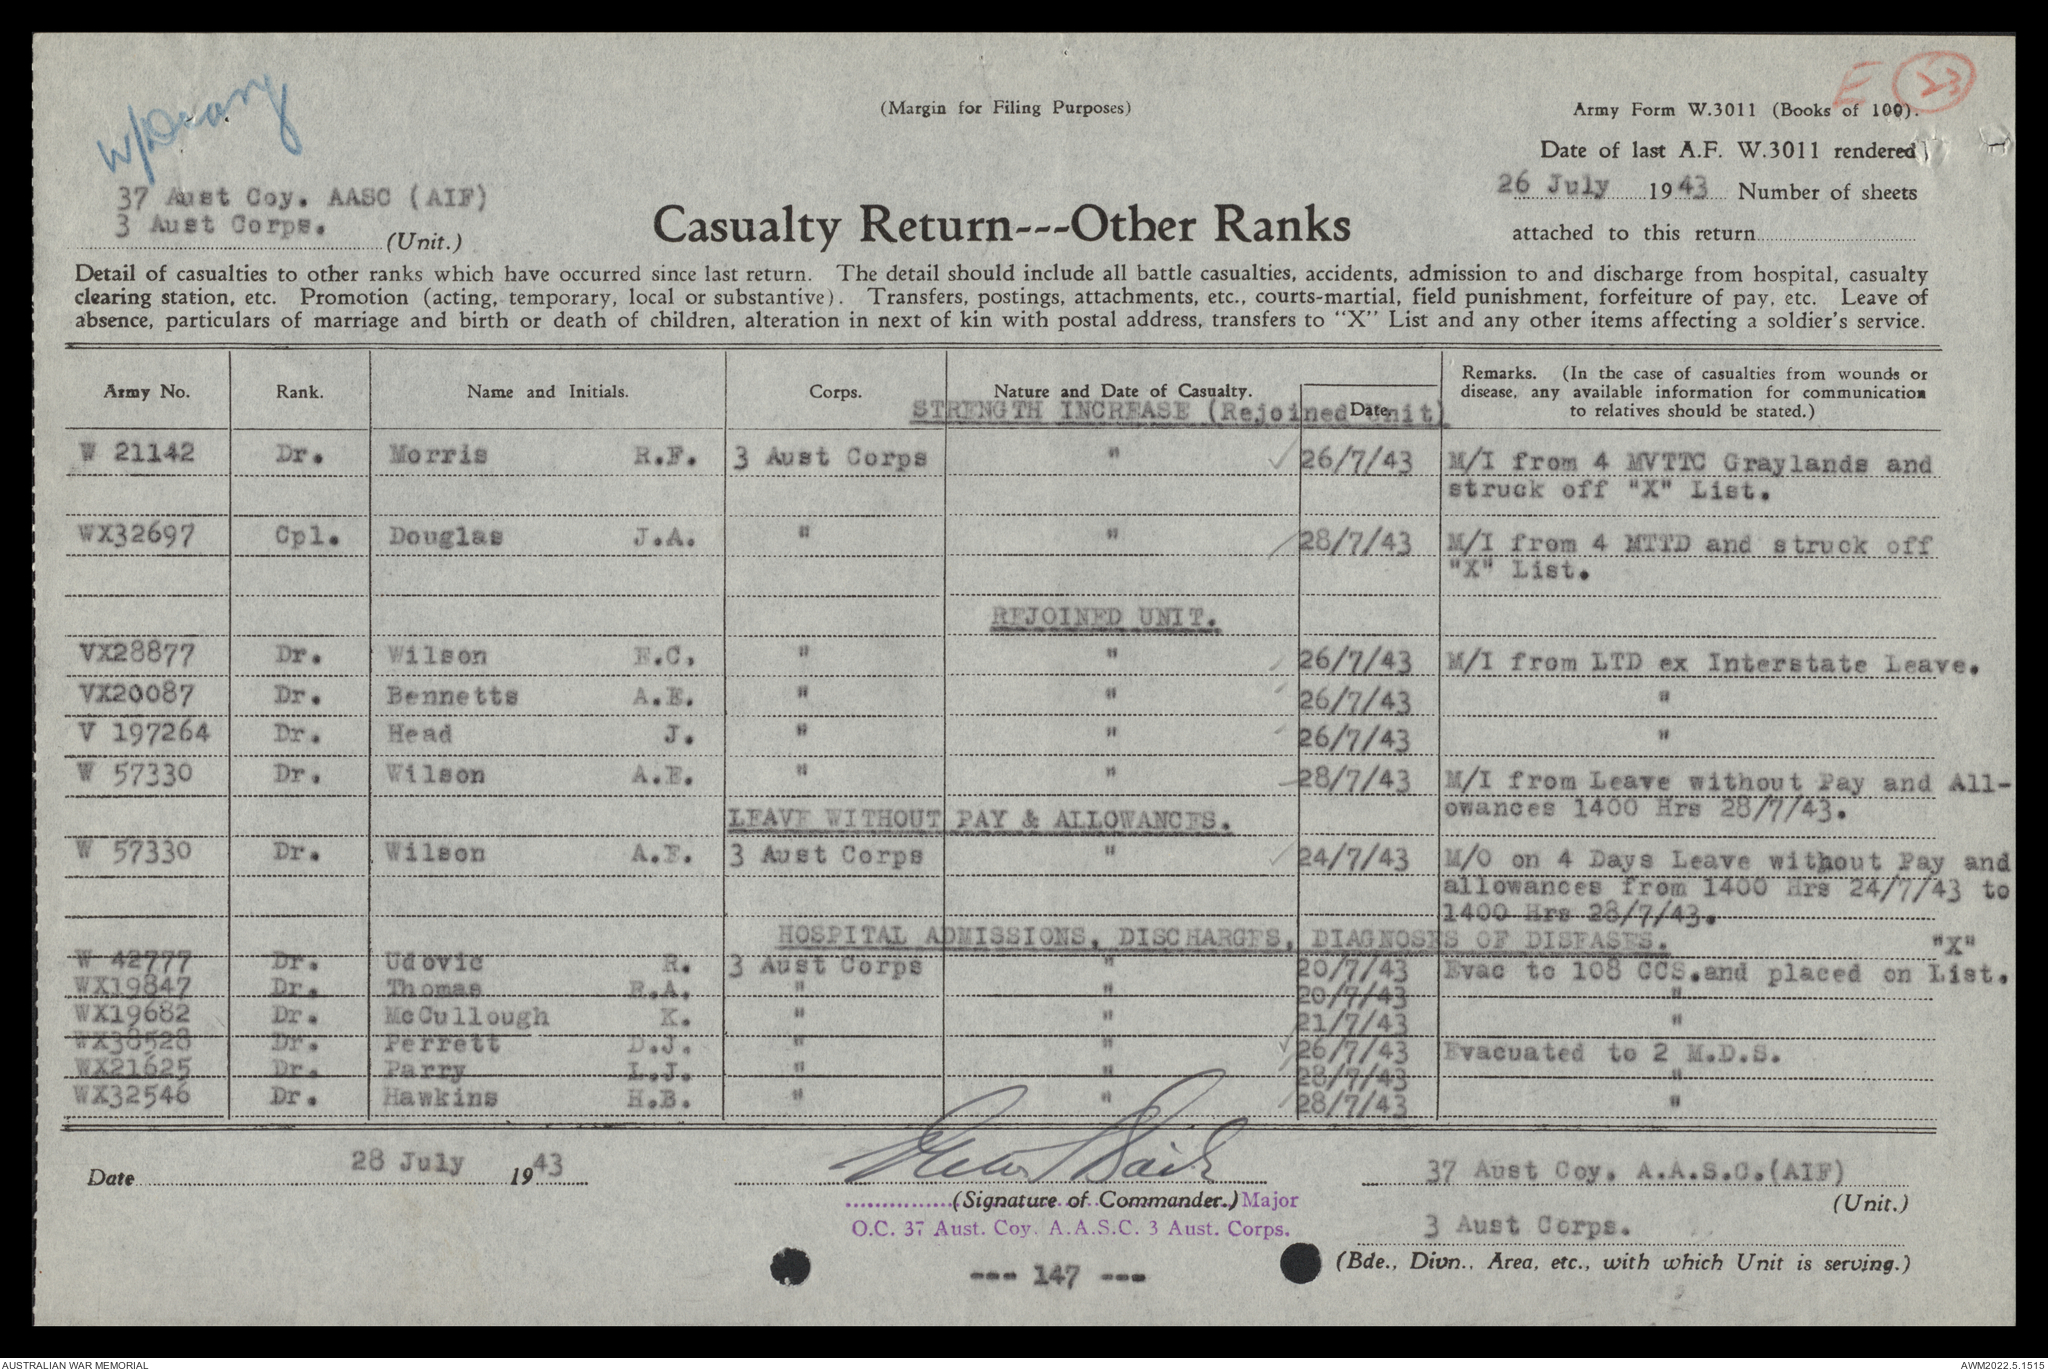 W/Diary
E 23
(Margin for Filing Purposes)
Army Form W.3011 (Books of 100).
Date of last A.F. W.3011 rendered
26 July 1943 Number of sheets
attached to this return
37 Aust Coy. AASC (AIF)
3 Aust Corps.
(Unit.)
Casualty Return---Other Ranks
Detail of casualties to other ranks which have occurred since last return. The detail should include all battle casualties, accidents, admission to and discharge from hospital, casualty
clearing station, etc. Promotion (acting, temporary, local or substantive). Transfers, postings, attachments, etc., courts-martial, field punishment, forfeiture of pay, etc. Leave of
absence, particulars of marriage and birth or death of children, alteration in next of kin with postal address, transfers to "X" List and any other items affecting a soldier's service.
Army No. Rank. Name and Initials. Corps. Nature and Date of Casualty. Date Remarks. (In the case of casualties from wounds or
disease, any available information for communication
to relatives should be stated.)
STRENGTH INCREASE (Rejoined Unit)
W 21142 Dr. Morris R.F. 3 Aust Corps " 26/7/43 M/I from 4 MVTTC Graylands and
struck off "X" List.
WX32697 Cpl. Douglas J.A. " " 28/7/43 M/I from 4 MTTD and struck off
"X" List.
REJOINED UNIT.
VX28877 Dr. Wilson E.C. " " 26/7/43 M/I from LTD ex Interstate Leave.
VX20087 Dr. Bennetts A.E. " " 26/7/43 "
V 197264 Dr. Head J. " " 26/7/43 "
W 57330 Dr. Wilson A.E. " " 28/7/43 M/I from Leave without Pay and All-
owances 1400 Hrs 28/7/43.
LEAVE WITHOUT PAY & ALLOWANCES.
W 57330 Dr. Wilson A.E. 3 Aust Corps " 24/7/43 M/O on 4 Days Leave without Pay and
allowances from 1400 Hrs 24/7/43 to
1400 Hrs 28/7/43.
HOSPITAL ADMISSIONS, DISCHARGES, DIAGNOSES OF DISEASES.
"X"
W 42777 Dr. Udovic R. 3 Aust Corps " 20/7/43 Evac to 108 CCS.and placed on List.
WX19847 Dr. Thomas R.A. " " 20/7/43 "
WX19682 Dr. McCullough K. " " 21/7/43 "
WX38528 Dr. Perrett D.J. " " 26/7/43 Evacuated to 2 M.D.S.
WX21625 Dr. Parry L.J. " " 28/7/43 "
WX32546 Dr. Hawkins H.B. " " 28/7/43 "
Date 28 July 1943
(Signature of Commander.) Major
O.C. 37 Aust. Coy. A.A.S.C. 3 Aust. Corps.
37 Aust Coy. A.A.S.C.(AIF)
(Unit.)
3 Aust Corps.
(Bde., Divn., Area, etc., with which Unit is serving.)
--- 147 ---
AUSTRALIAN WAR MEMORIAL
AWM2022.5.1515